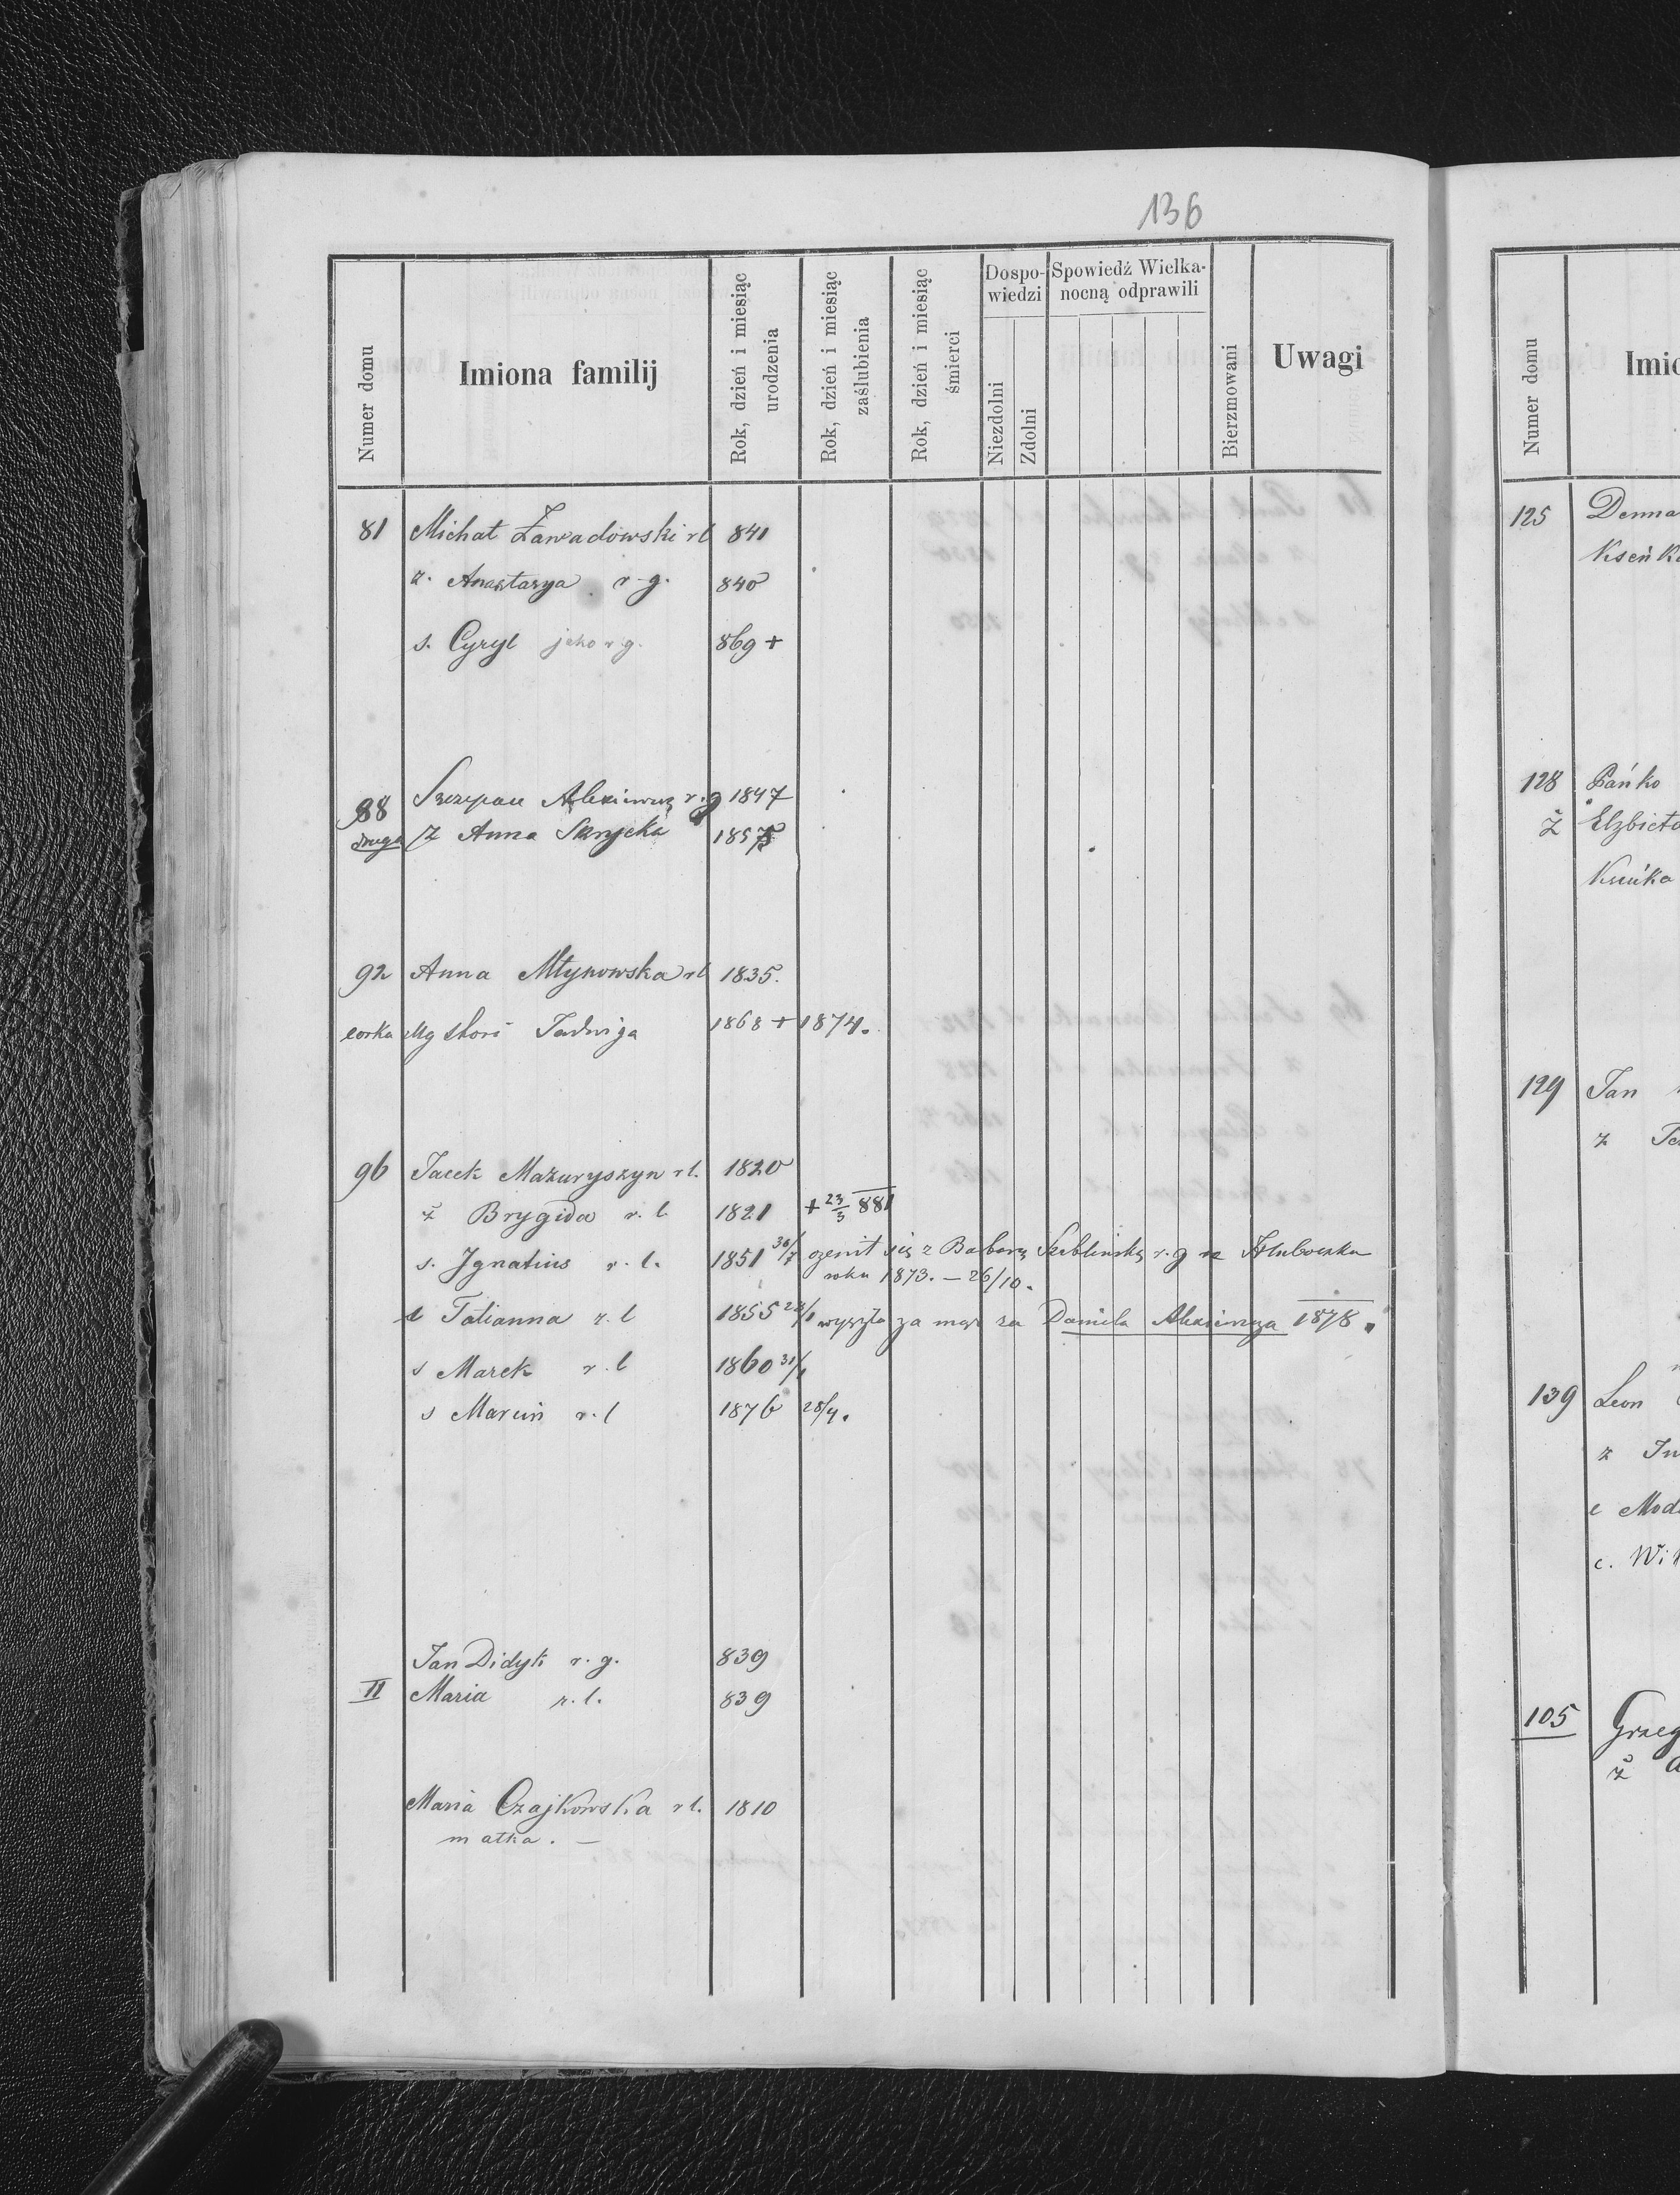 136
Numer domu
Imiona familij
Rok, dzień i miesiąc urodzenia
Rok, dzień i miesiąc zaślubienia
Rok, dzień i miesiąc śmierci
Dospowiedzi
Niezdolni
Zdolni
Spowiedź Wielkanocną odprawili
Bierzmowani
Uwagi
81 Michał Zawadowski rl 841
ż. Anastazya r g. 840
s. Cyryl jako r g. 869 +
88 Szczepan Alexiewicz r.g 1847
druga Ż Anna 1857
92 Anna Młynowska rl 1835.
corka Jadwiga 1868 + 1874.
96 Jacek Mazuryszyn rl. 1820
ż Brygida r. l 1821 + 23/3 881
s. Ignatius r. l. 1851 30/7 ożenił się z Barbarą Szablińską r. g z Hluboczka
roku 1873. — 26/10.
c Tatianna r. l 1855 wyszła za mąż za Daniela Alexiewicza 1878.
s Marek r. l 1860 31/1
s Marcin r. l 1876 28/4.
Jan Didyk r. g. 839
II Maria r. l. 839
Maria Czajkowska rl. 1810
matka. —
Numer domu
Imio
125 Denna
Kseńka
128 Pańko
Ż Elzbieta
Kseńka
129 Jan
ż
139 Leon
ż
c
c. Wi
105 Grzeg
ż